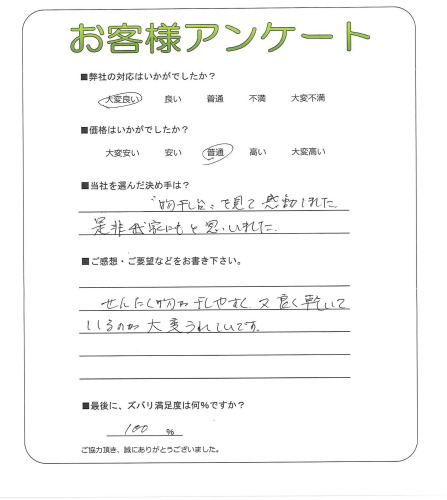 お客様アンケート
■弊社の対応はいかがでしたか?
大変良い 良い 普通 不満 大変不満
■価格はいかがでしたか?
大変安い 安い 普通 高い 大変高い
■当社を選んだ決め手は?
〝物干し台〟を見て感動しました
是非我家にもと思いました.
■ご感想・ご要望などをお書き下さい。
せんたく物が干しやすく又良く乾いて
いるのが大変うれしいです.
■最後に、ズバリ満足度は何%ですか?
100 %
ご協力頂き、誠にありがとうございました。